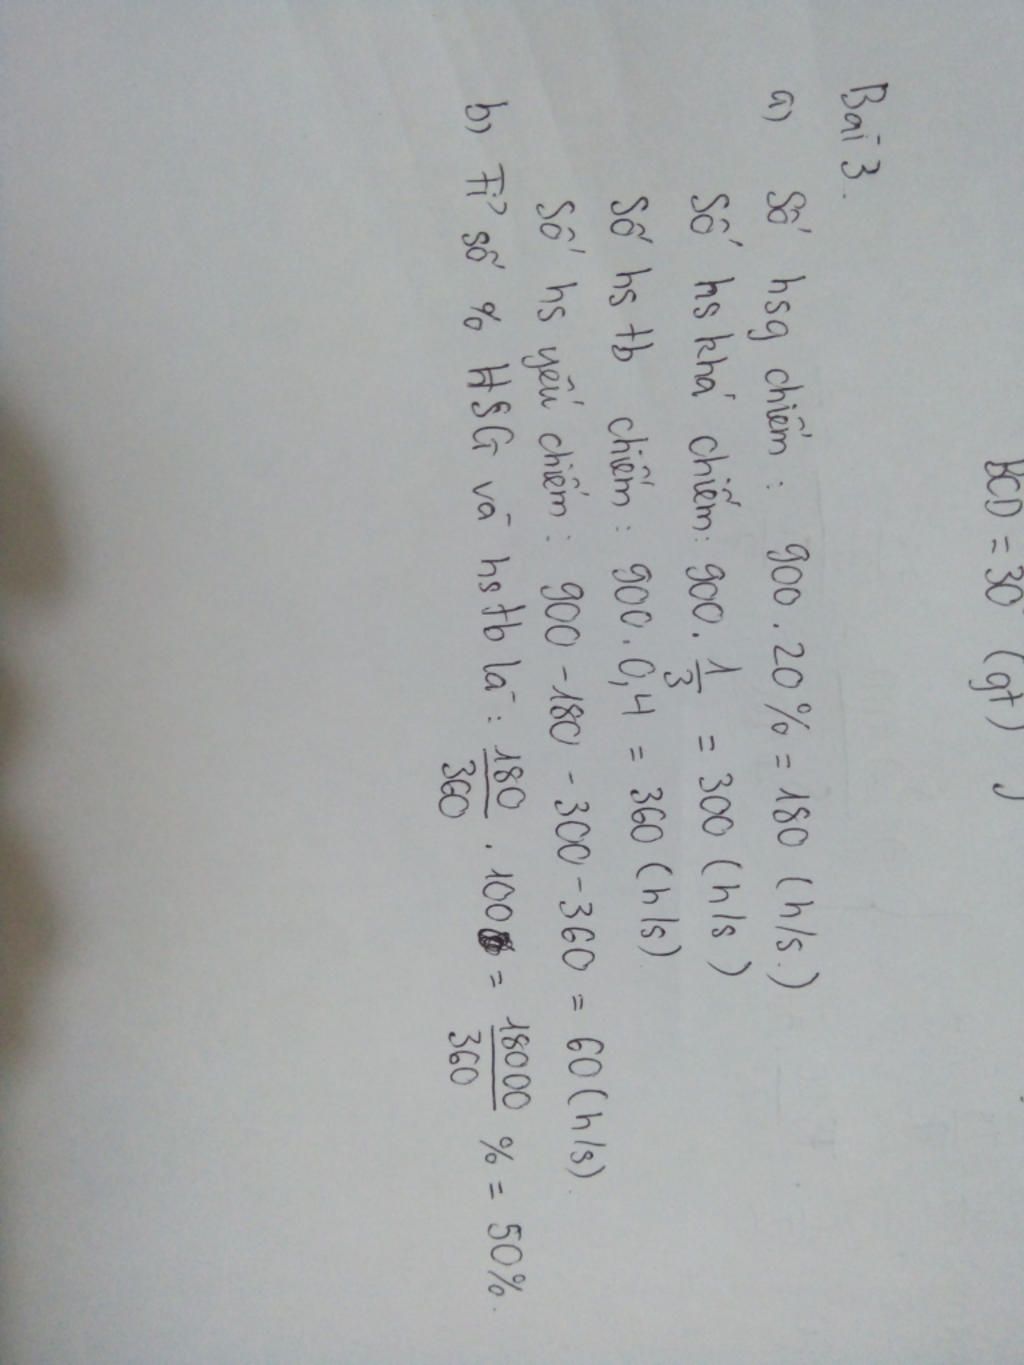 BCD = 30 (gt)
Bài 3.
a) Số hsg chiếm : 900 . 20% = 180 (h/s.)
Số hs khá chiếm : 900 . 1/3 = 300 (h/s)
Số hs tb chiếm : 900 . 0,4 = 360 (h/s)
Số hs yếu chiếm : 900 - 180 - 300 - 360 = 60 (h/s).
b) Tỉ số % HSG và hs tb là : 180/360 . 100 = 18000/360 % = 50%.